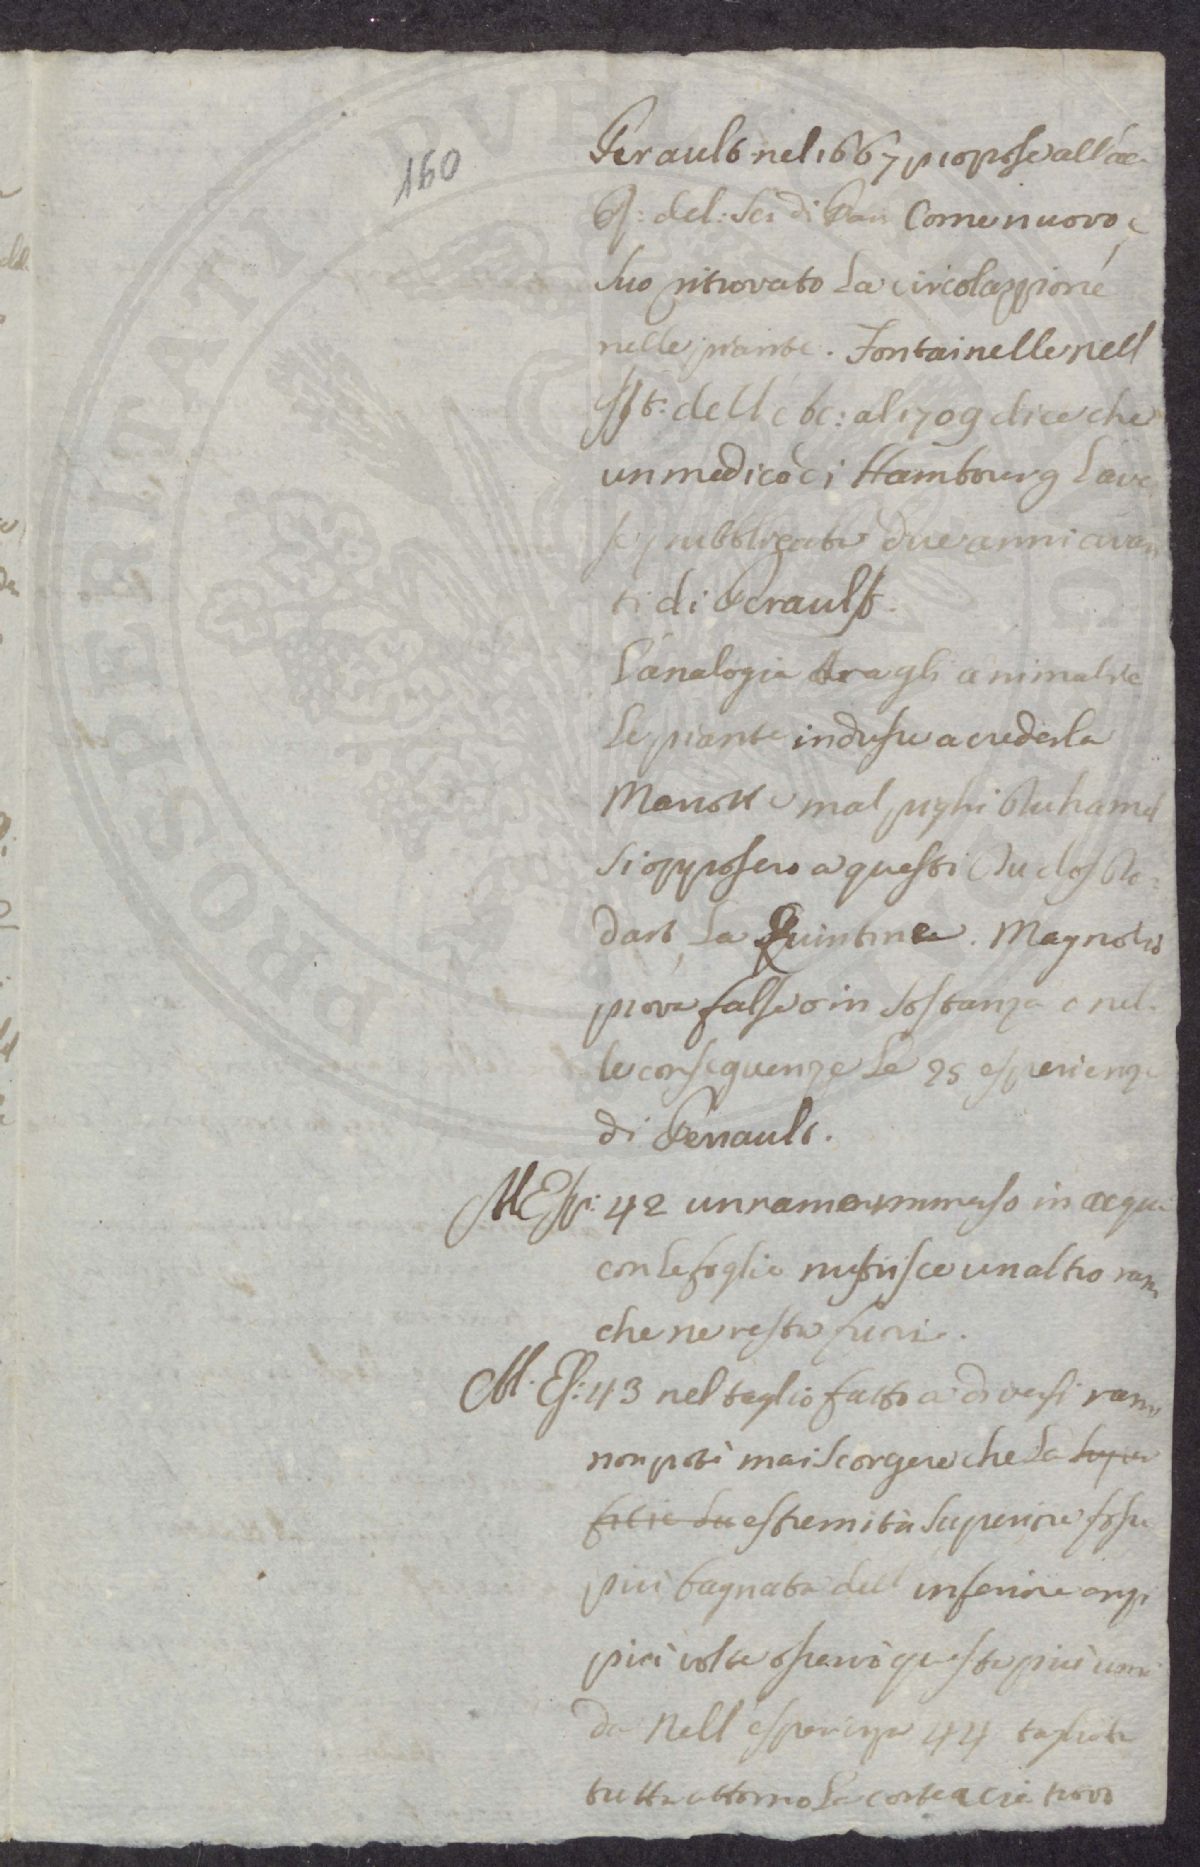 160
Perault nel 1667 propose all'ac=
cd: del: Sci di Pari Come nuovo e
suo ritrovato la circolazzione
nelle piante. Fontainelle nell
Ist: dell e tc: al 1709 dice che
un medico di Hambourg l'ave
se pubblicata due anni avan
ti di Perault.
L'analogia tra gli animali e
le piante indusse a crederla
Mariotte malpighi Duhamel
si opposero a questi Duclos Do=
dart, La Quintine. Magnolio
prova false o in sostanza o nel=
le conseguenze le 25 esperienze
di Perrault.
M Esp: 42 un ramo immerso in acqua
con le foglie nutrisce un altro ram
che ne resta fuori.
M. Es: 43 nel taglio fatto a diversi rami
non potè mai scorgere che la super
ficie su estremità superiore fosse
più bagnata dell inferiore anzi
più volte osservò questa più umi
da Nell esperienza 44 tagliata
tutta attorno la corteccia trovò
PROSPERITATI PVBLICAE